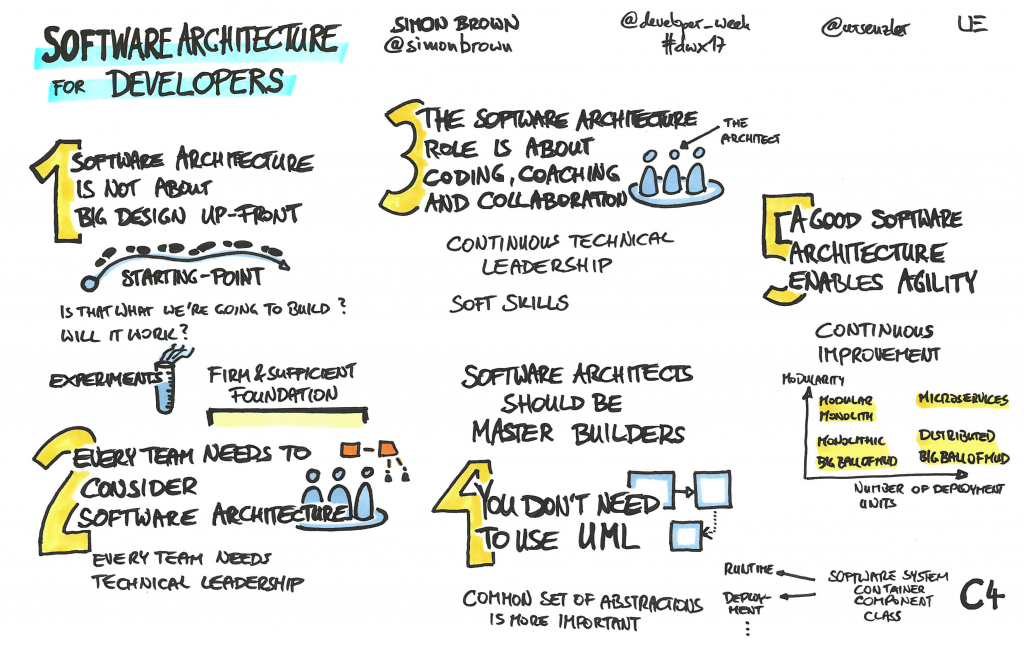 SOFTWARE ARCHITECTURE
FOR DEVELOPERS
SIMON BROWN
@simonbrown
@developer_week
#dwx17
UE
1
SOFTWARE ARCHITECTURE
IS NOT ABOUT
BIG DESIGN UP-FRONT
STARTING-POINT
IS THAT WHAT WE'RE GOING TO BUILD?
WILL IT WORK?
EXPERIMENTS
FIRM & SUFFICIENT
FOUNDATION
2
EVERY TEAM NEEDS TO
CONSIDER
SOFTWARE ARCHITECTURE
EVERY TEAM NEEDS
TECHNICAL LEADERSHIP
3
THE SOFTWARE ARCHITECTURE
ROLE IS ABOUT
CODING, COACHING
AND COLLABORATION
THE
ARCHITECT
CONTINUOUS TECHNICAL
LEADERSHIP
SOFT SKILLS
SOFTWARE ARCHITECTS
SHOULD BE
MASTER BUILDERS
4
YOU DON'T NEED
TO USE UML
COMMON SET OF ABSTRACTIONS
IS MORE IMPORTANT
RUNTIME
DEPLOY-
MENT
...
SOFTWARE SYSTEM
CONTAINER
COMPONENT
CLASS
C4
5
A GOOD SOFTWARE
ARCHITECTURE
ENABLES AGILITY
CONTINUOUS
IMPROVEMENT
MODULARITY
MODULAR
MONOLITH
MICROSERVICES
MONOLITHIC
BIG BALL OF MUD
DISTRIBUTED
BIG BALL OF MUD
NUMBER OF DEPLOYMENT
UNITS